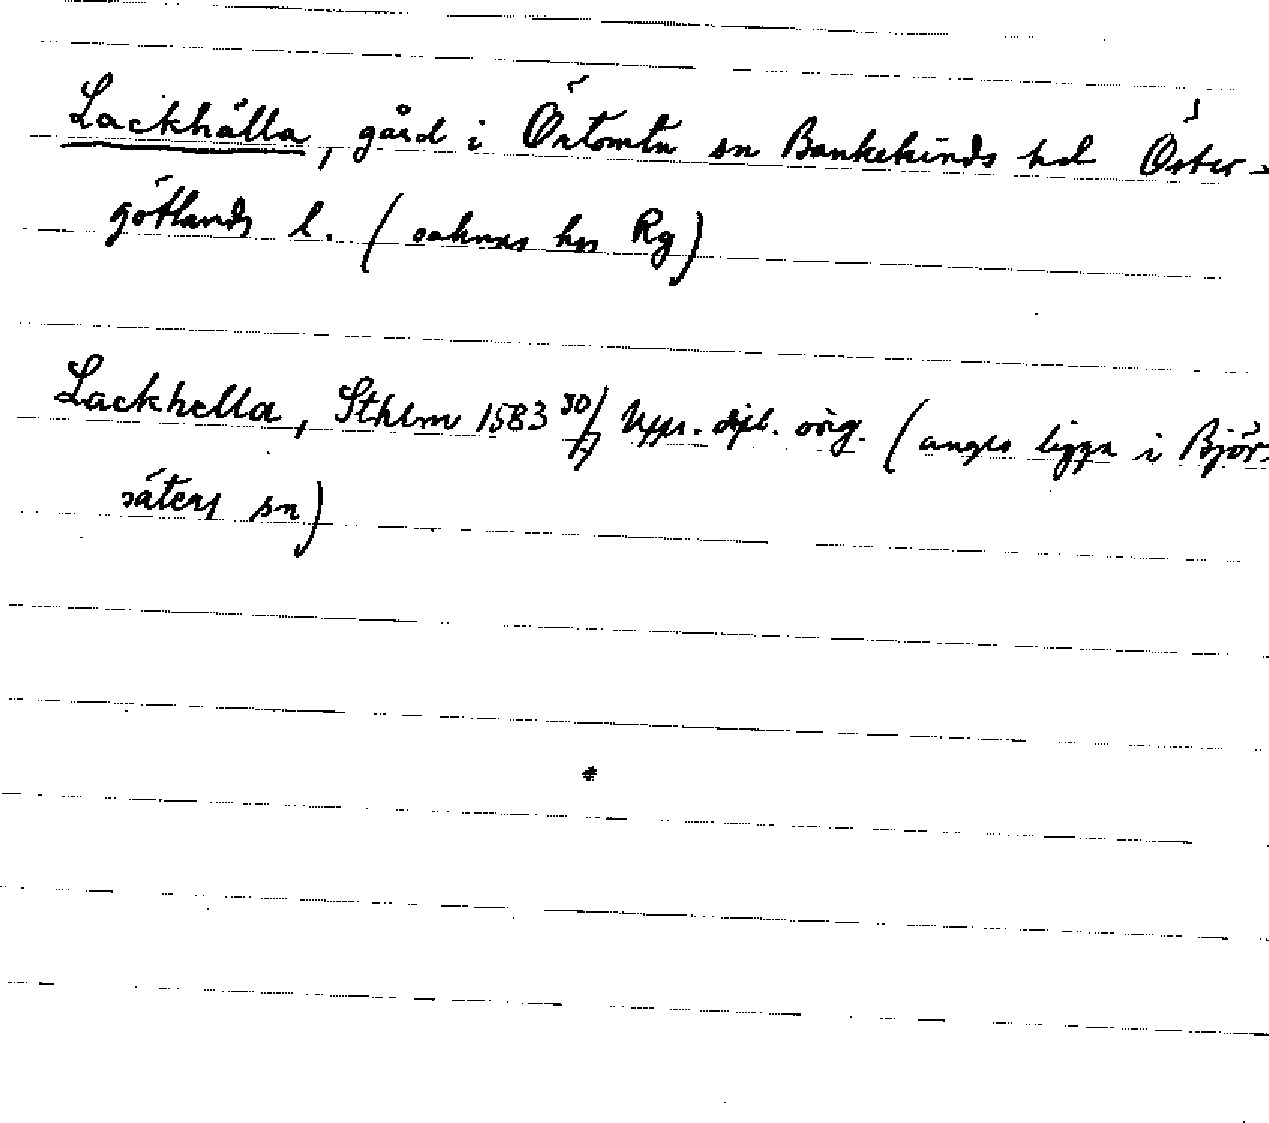 Lackhälla, gård i Örtomta sn Bankekinds hd Öster-
götlands l. (saknas hos Rg)
Lackhella, Sthlm 1583 30/7 Upps. dipl. orig. (anges ligga i Björ-
säters sn)